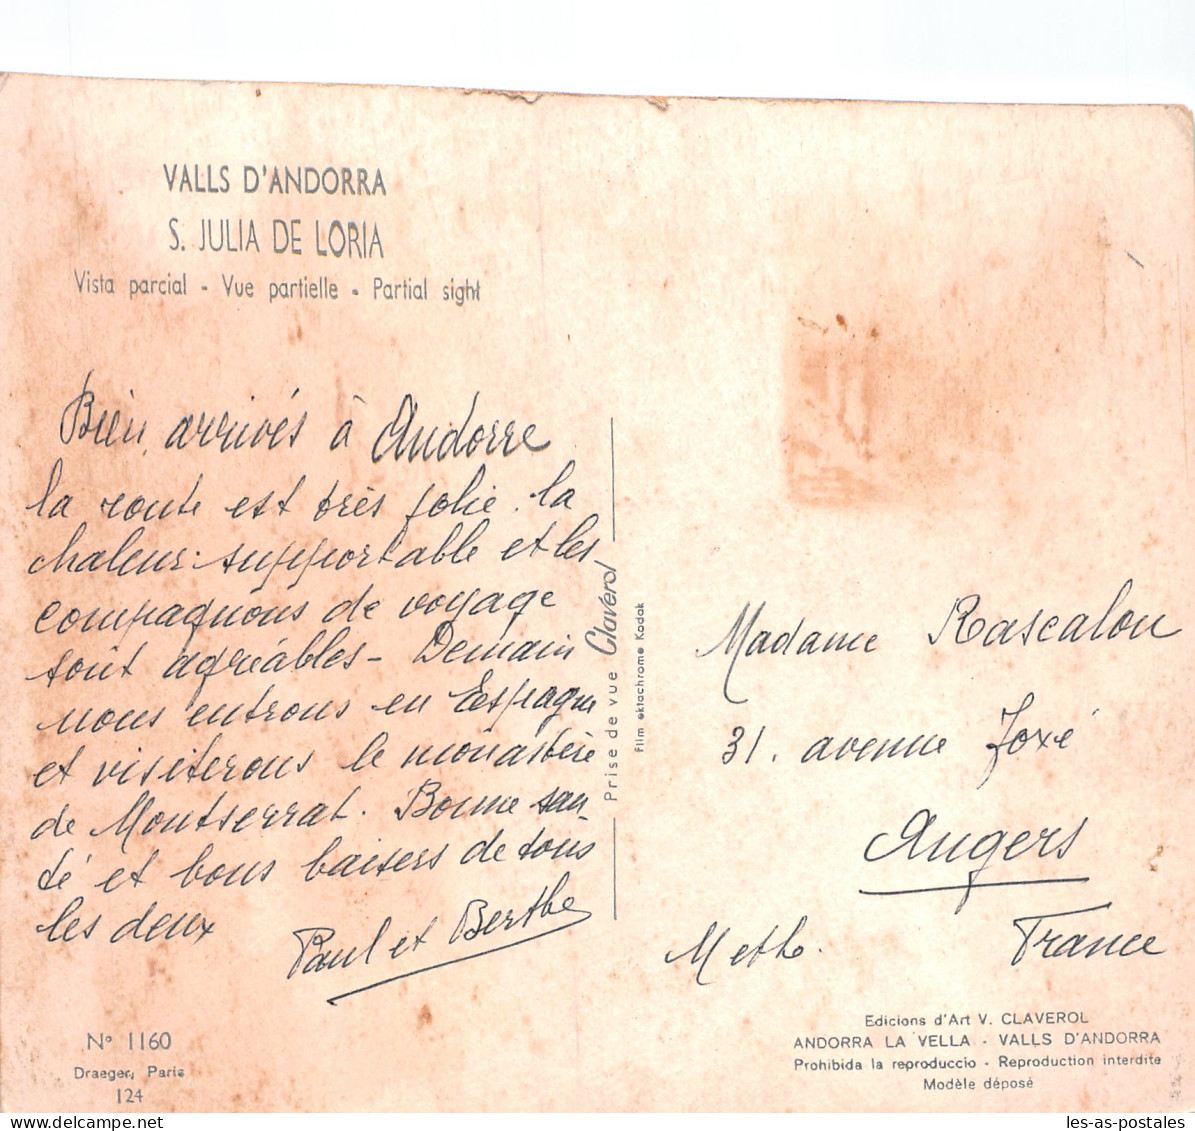 VALLS D'ANDORRA
S. JULIA DE LORIA
Vista parcial - Vue partielle - Partial sight
Bien arrivés à Andorre
la route est très jolie. la
chaleur supportable et les
compagnons de voyage
sont agréables - Demain
nous entrons en Espagne
et visiterons le monastère
de Montserrat. Bonne san-
té et bons baisers de tous
les deux
Paul et Berthe
Prise de vue Claverol
Film ektachrome Kodak
Madame Rascalou
31. avenue Joxé
Angers
M et L.
France
N° 1160
Draeger, Paris
124
Edicions d'Art V. CLAVEROL
ANDORRA LA VELLA - VALLS D'ANDORRA
Prohibida la reproduccio - Reproduction interdite
Modèle déposé
les-as-postales